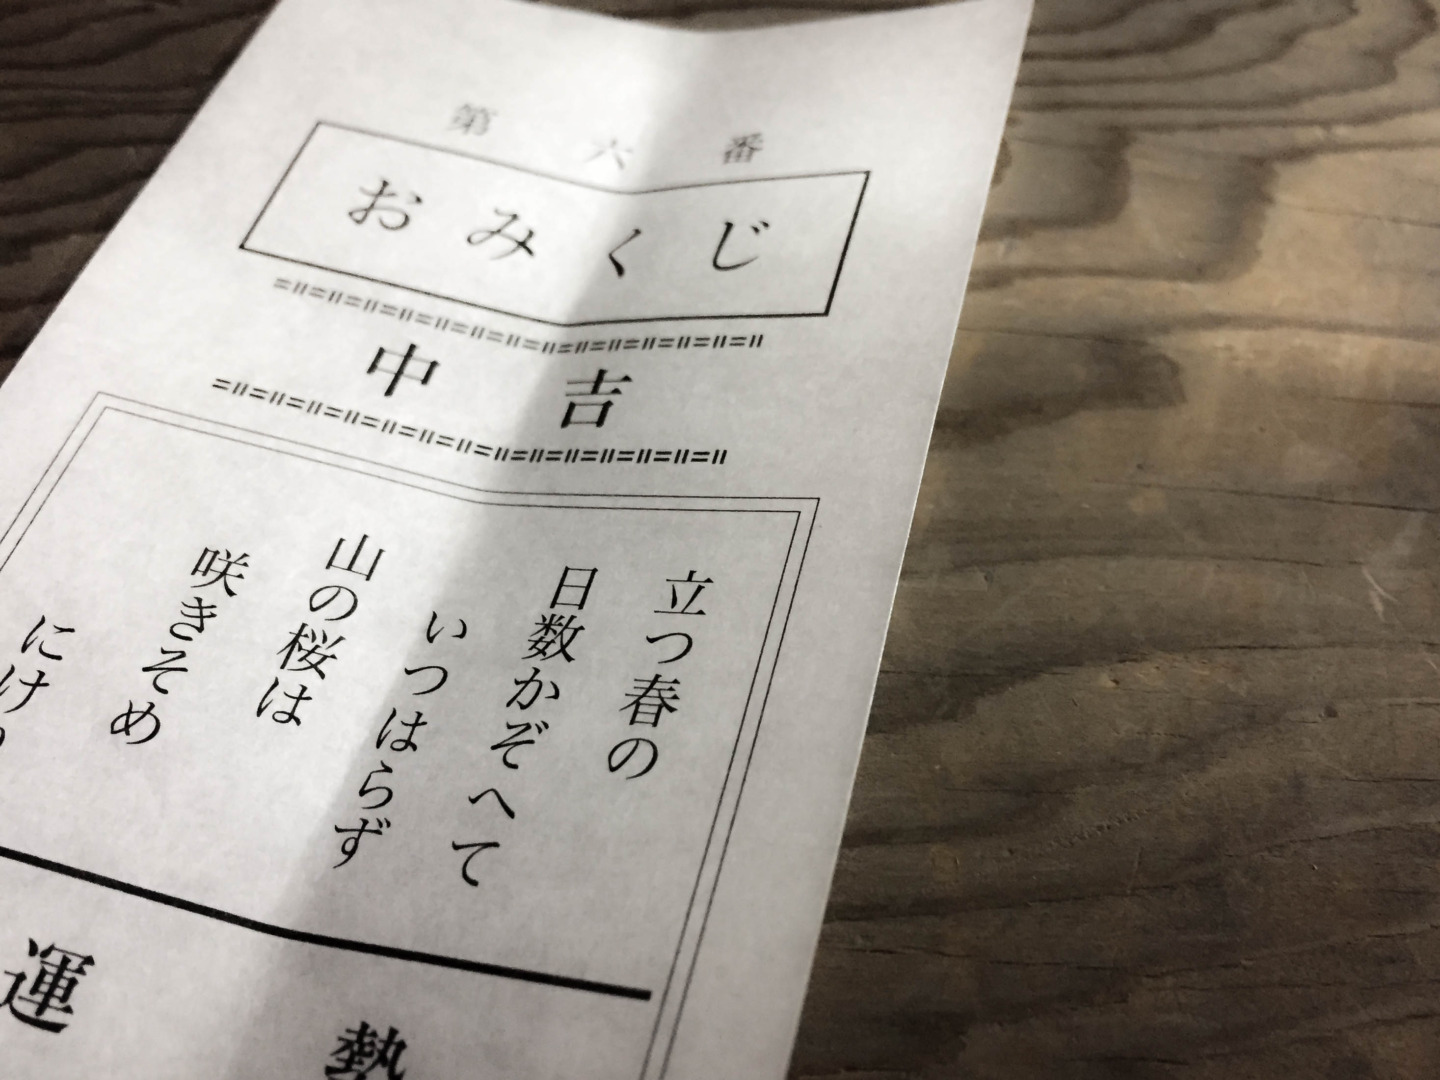 第六番
おみくじ
中吉
立つ春の
日数かぞへて
いつはらず
山の桜は
咲きそめ
にけり
運勢